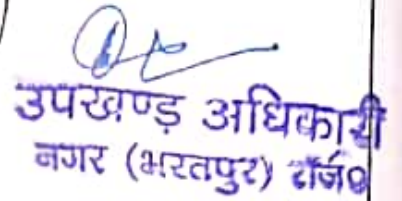 उपखण्ड अधिकारी
नगर (भरतपुर) राज०